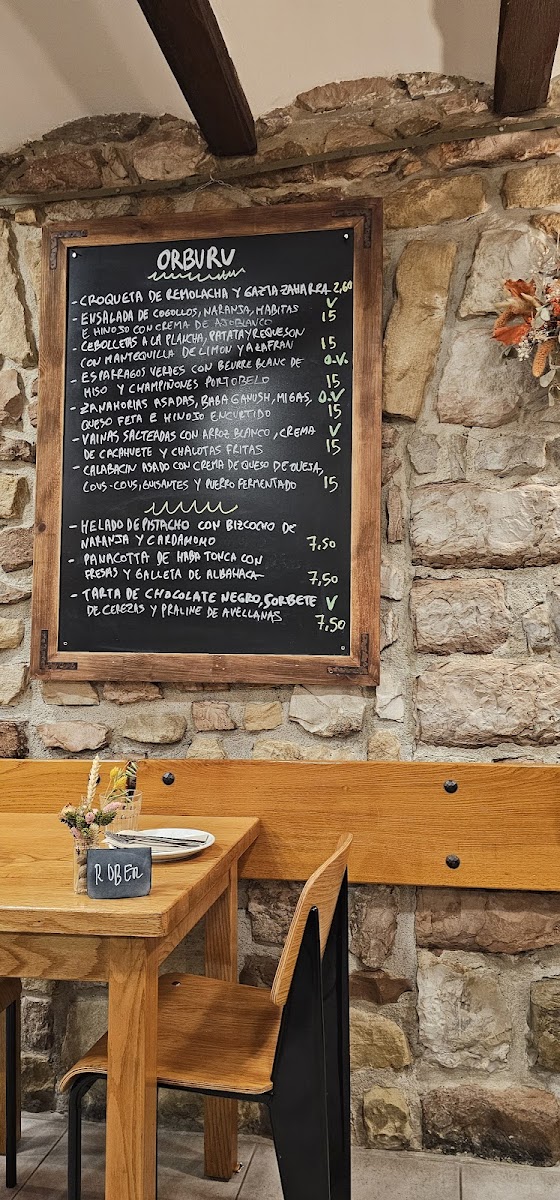 ORBURU
- CROQUETA DE REMOLACHA Y GAZTA ZAHARRA 2,60
- ENSALADA DE COGOLLOS, NARANJA, HABITAS V
E HINOJO CON CREMA DE AJOBLANCO 15
- CEBOLLETAS A LA PLANCHA, PATATA Y REQUESON 15
CON MANTEQUILLA DE LIMON Y AZAFRAN
- ESPARRAGOS VERDES CON BEURRE BLANC DE O.V.
MISO Y CHAMPIÑONES PORTOBELO 15
- ZANAHORIAS ASADAS, BABA GANUSH, MIGAS, O.V
QUESO FETA E HINOJO ENCURTIDO 15
- VAINAS SALTEADAS CON ARROZ BLANCO, CREMA V
DE CACAHUETE Y CHALOTAS FRITAS 15
- CALABACIN ASADO CON CREMA DE QUESO DE OVEJA,
COUS-COUS, GUISANTES Y PUERRO FERMENTADO 15
- HELADO DE PISTACHO CON BIZCOCHO DE
NARANJA Y CARDAMOMO 7,50
- PANACOTTA DE HABA TONCA CON
FRESAS Y GALLETA DE ALBAHACA 7,50
- TARTA DE CHOCOLATE NEGRO, SORBETE V
DE CEREZAS Y PRALINE DE AVELLANAS 7,50
ROBER